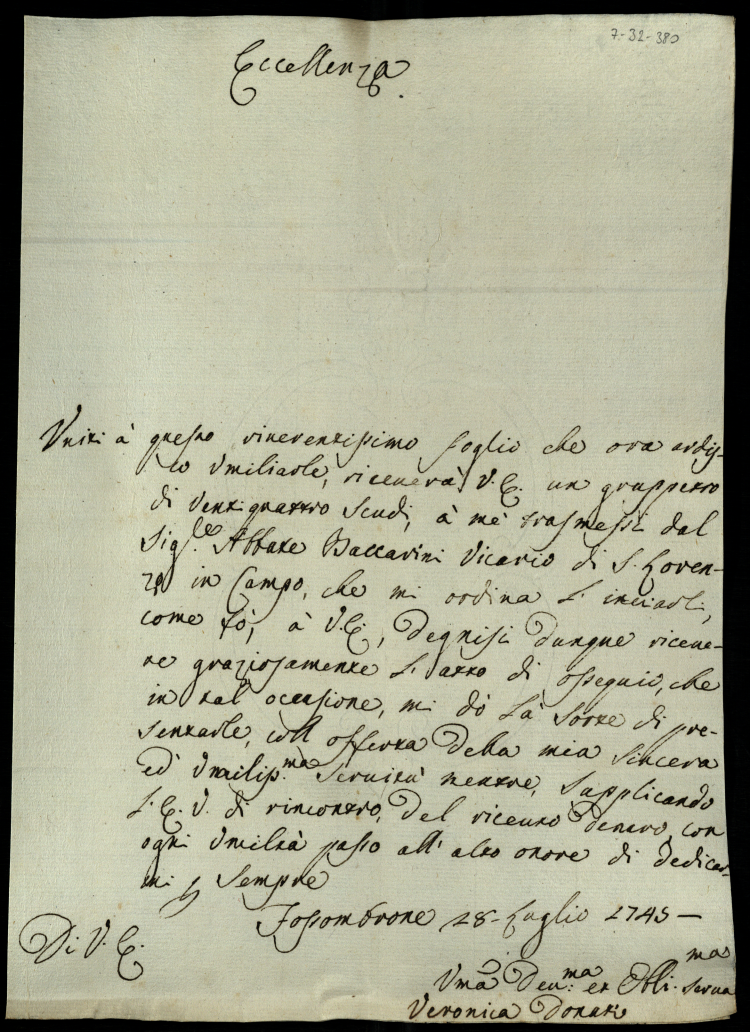 7-32-380
Eccellenza
Uniti à questo riverentissimo foglio che ora ardis-
co Umiliarle, riceverà V.E. un gruppetto
di venti quattro Scudi, à mè trasmessi dal
Sig.re Abbate Baccarini Vicario di S. Loren-
zo in Campo, che mi ordina l' inviarli,
come fò, à V.E., degnisi dunque riceve-
re graziosamente l' atto di ossequio, che
in tal' occasione, mi dò la sorte di pre-
sentarle, coll offerta della mia sincera
ed' Umilis.ma servitù mentre, supplicando
l' E.V. di rincontro, del ricevuto denaro, con
ogni Umiltà passo all' alto onore di dedicar-
mi sempre
Fossombrone 28 Luglio 1745
Di V.E.
Uma Deu.ma et Obli.ma serva
Veronica Donati